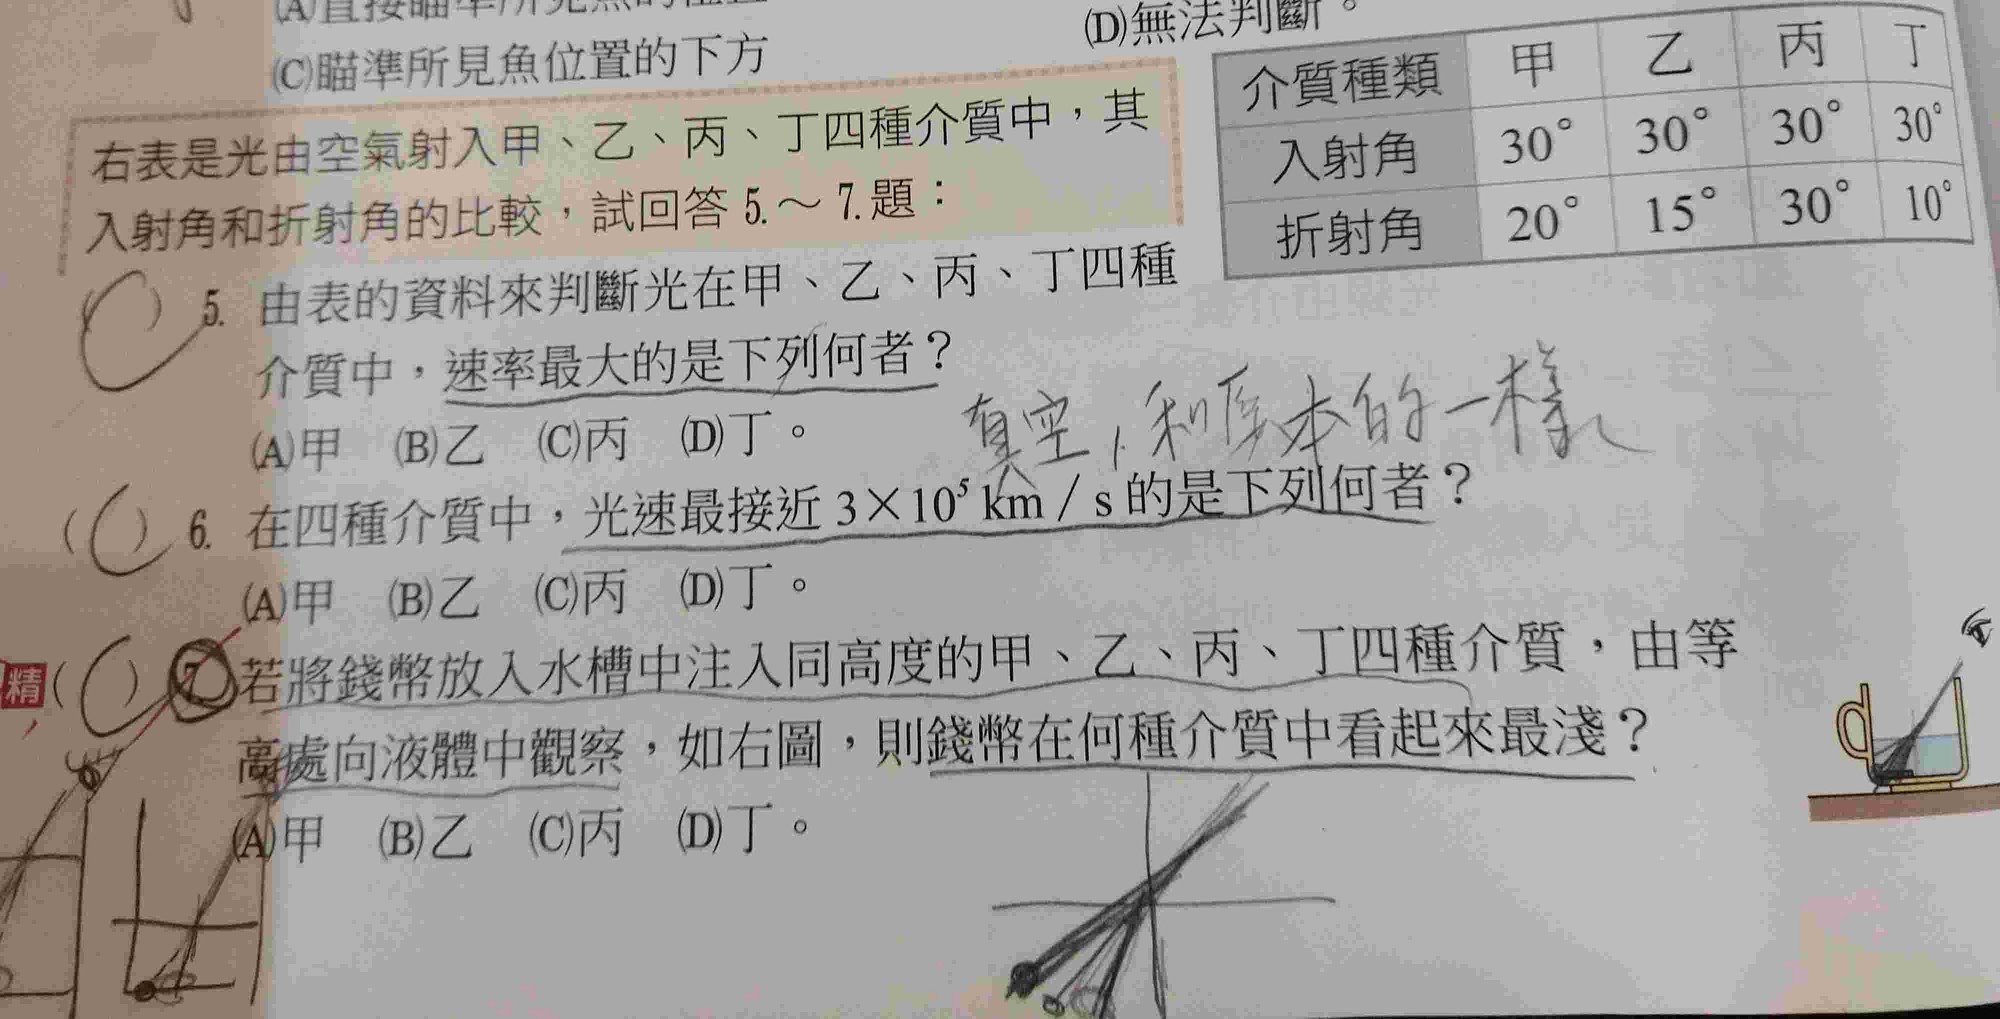 (C)瞄準所見魚位置的下方
(D)無法判斷。
右表是光由空氣射入甲、乙、丙、丁四種介質中，其
入射角和折射角的比較，試回答 5.～7.題：
介質種類 甲 乙 丙 丁
入射角 30° 30° 30° 30°
折射角 20° 15° 30° 10°
( C ) 5. 由表的資料來判斷光在甲、乙、丙、丁四種
介質中，速率最大的是下列何者？
(A)甲 (B)乙 (C)丙 (D)丁。
真空，和原本的一樣
( C ) 6. 在四種介質中，光速最接近 3×10⁵ km / s 的是下列何者？
(A)甲 (B)乙 (C)丙 (D)丁。
精 ( C ) 7. 若將錢幣放入水槽中注入同高度的甲、乙、丙、丁四種介質，由等
高處向液體中觀察，如右圖，則錢幣在何種介質中看起來最淺？
(A)甲 (B)乙 (C)丙 (D)丁。